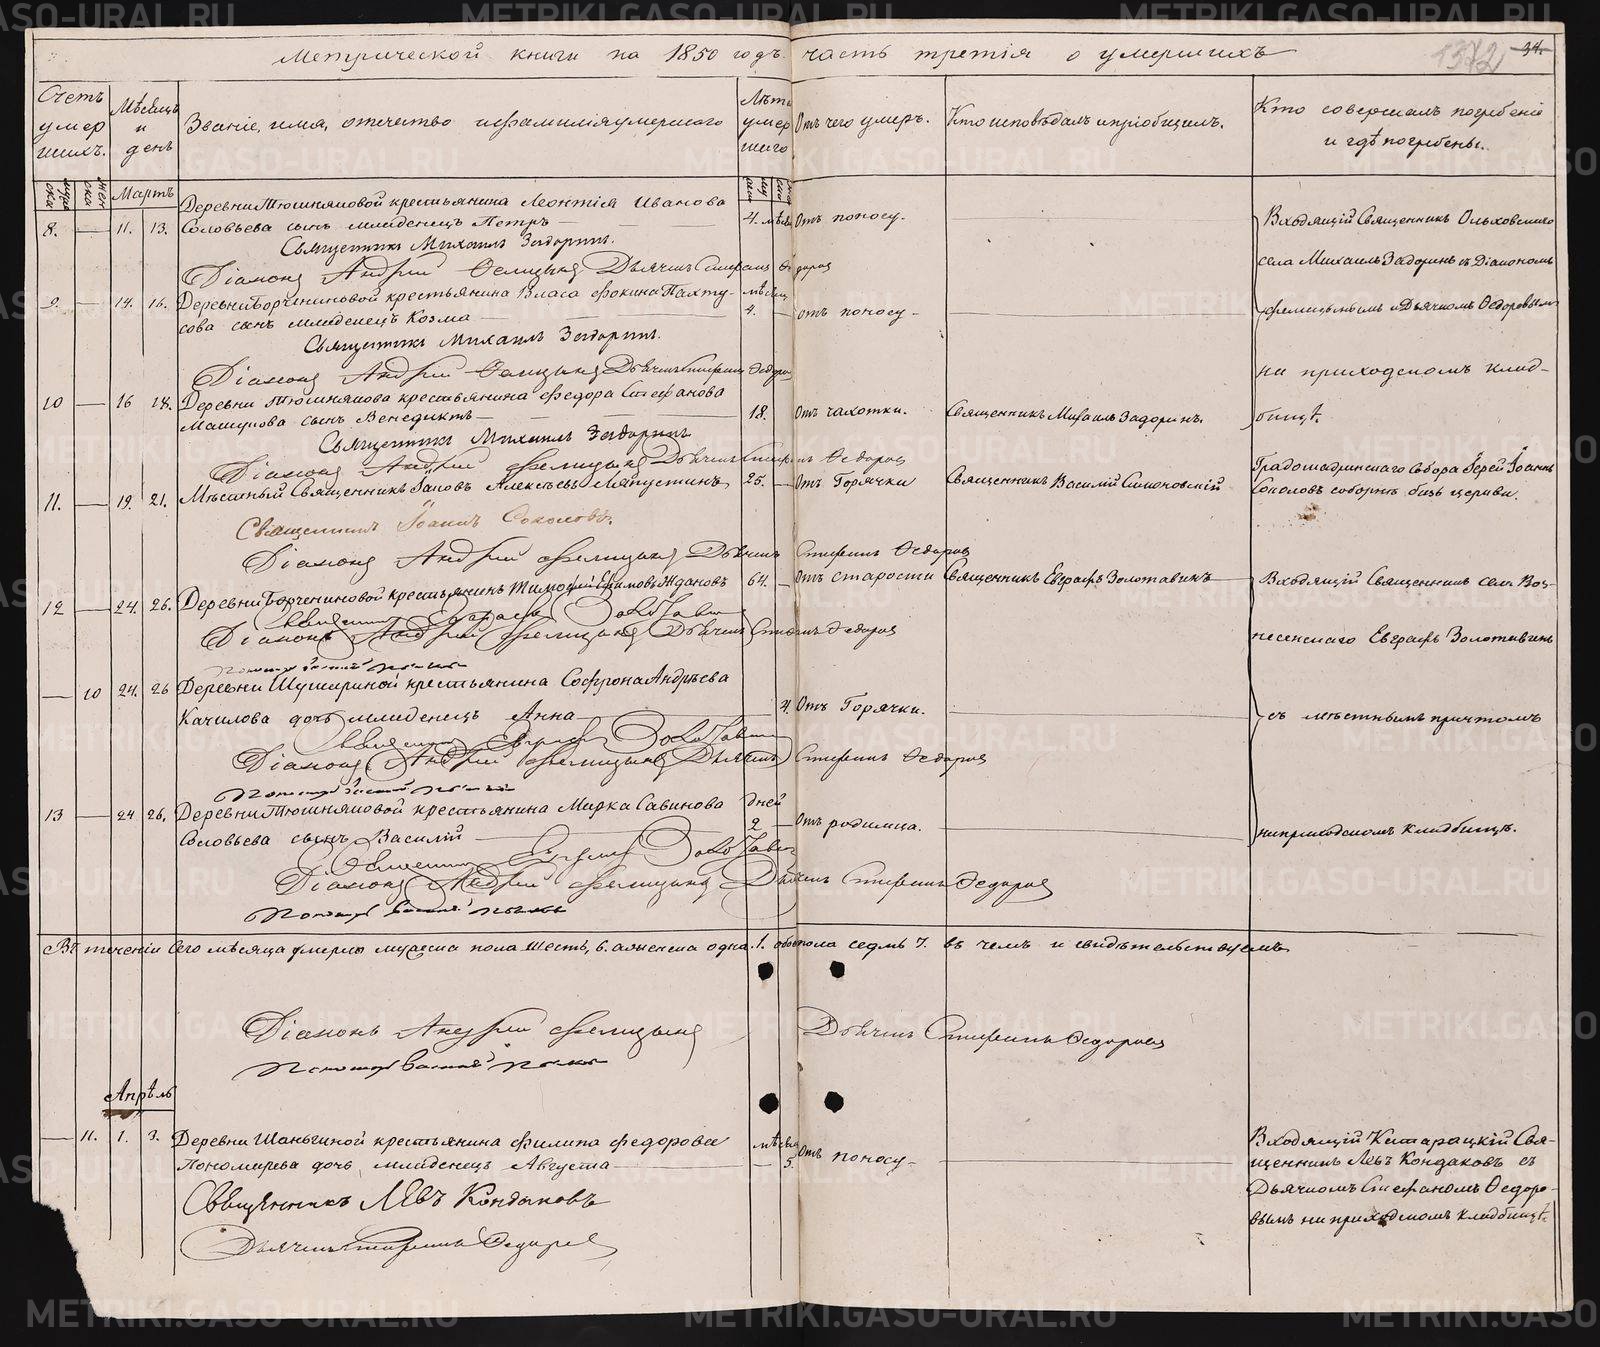 Метрической книги на 1850 годъ часть третія о умершихъ
1372
34.
Счетъ умершихъ.
Мѣсяцъ и день
Званіе, имя, отечество и фамилія умершаго
Лѣта умершаго
Отъ чего умеръ.
Кто исповѣдалъ и пріобщилъ.
Кто совершалъ погребеніе
и гдѣ погребены.
Мартъ
Деревни Тюшняковой крестьянина Леонтія Иванова
8. 11. 13. Соловьева сынъ младенецъ Петръ 4. мѣсяц Отъ поносу.
Священникъ Михаилъ Задоринъ.
Діаконъ Андрей Фелицынъ Дьячекъ Стефанъ Федоровъ
Входящій Священникъ Ольховскаго
села Михаилъ Задоринъ съ Діакономъ
Фелицынымъ и Дьячкомъ Федоровымъ
на приходскомъ клад-
бищѣ.
9. 14. 16. Деревни Борчениновой крестьянина Власа Фокина Пахту- мѣсяц
сова сынъ младенецъ Козма 4. отъ поносу
Священникъ Михаилъ Задоринъ.
Діаконъ Андрей Фелицынъ Дьячекъ Стефанъ Федоровъ
10 16 18. Деревни Тюшнякова крестьянина Федора Стефанова
сынъ Венедиктъ 18. Отъ чахотки. Священникъ Михаилъ Задоринъ.
Священникъ Михаилъ Задоринъ
Діаконъ Андрей Фелицынъ Дьячекъ Стефанъ Федоровъ
11. 19. 21. Мѣстный Священникъ Іаковъ Алексѣевъ Ляпустинъ 25. Отъ Горячки Священникъ Василій Симоновскій
Градошадринскаго собора Іерей Іоаннъ
Соколовъ соборнѣ близь церкви.
Священникъ Іоаннъ Соколовъ.
Діаконъ Андрей Фелицынъ Дьячекъ Стефанъ Федоровъ
12 24. 26. Деревни Борчениновой крестьянинъ Тимофей Ефимовъ Ждановъ 64. Отъ старости Священникъ Евграфъ Золотавинъ
Священникъ Евграфъ Золотавинъ
Діаконъ Андрей Фелицынъ Дьячекъ Стефанъ Федоровъ
Входящій Священникъ села Воз-
несенскаго Евграфъ Золотавинъ
съ мѣстнымъ причтомъ
на приходскомъ кладбищѣ.
10 24. 26 Деревни Шушариной крестьянина Софрона Андрѣева
Качилова дочь младенецъ Анна 4. Отъ Горячки.
Священникъ Евграфъ Золотавинъ
Діаконъ Андрей Фелицынъ Дьячекъ Стефанъ Федоровъ
13 24 26. Деревни Тюшняковой крестьянина Марка Савинова дней
Соловьева сынъ Василій 2 Отъ родимца.
Священникъ Евграфъ Золотавинъ
Діаконъ Андрей Фелицынъ Дьячекъ Стефанъ Федоровъ
Въ теченіи сего мѣсяца умерло мужеска пола шесть, 6. а женска одна. 1. обоего пола седмь 7. въ чемъ и свидѣтельствуемъ
Діаконъ Андрей Фелицынъ Дьячекъ Стефанъ Федоровъ
Апрѣль
11. 1. 3. Деревни Шаньгиной крестьянина Филипа Федорова мѣсяц
Пономарева дочь младенецъ Августа 5. Отъ поносу
Священникъ Левъ Кондаковъ
Дьячекъ Стефанъ Федоровъ
Входящій Катарацкій Свя-
щенникъ Левъ Кондаковъ съ
Дьячкомъ Стефаномъ Федоро-
вымъ на приходскомъ кладбищѣ.
METRIKI.GASO-URAL.RU